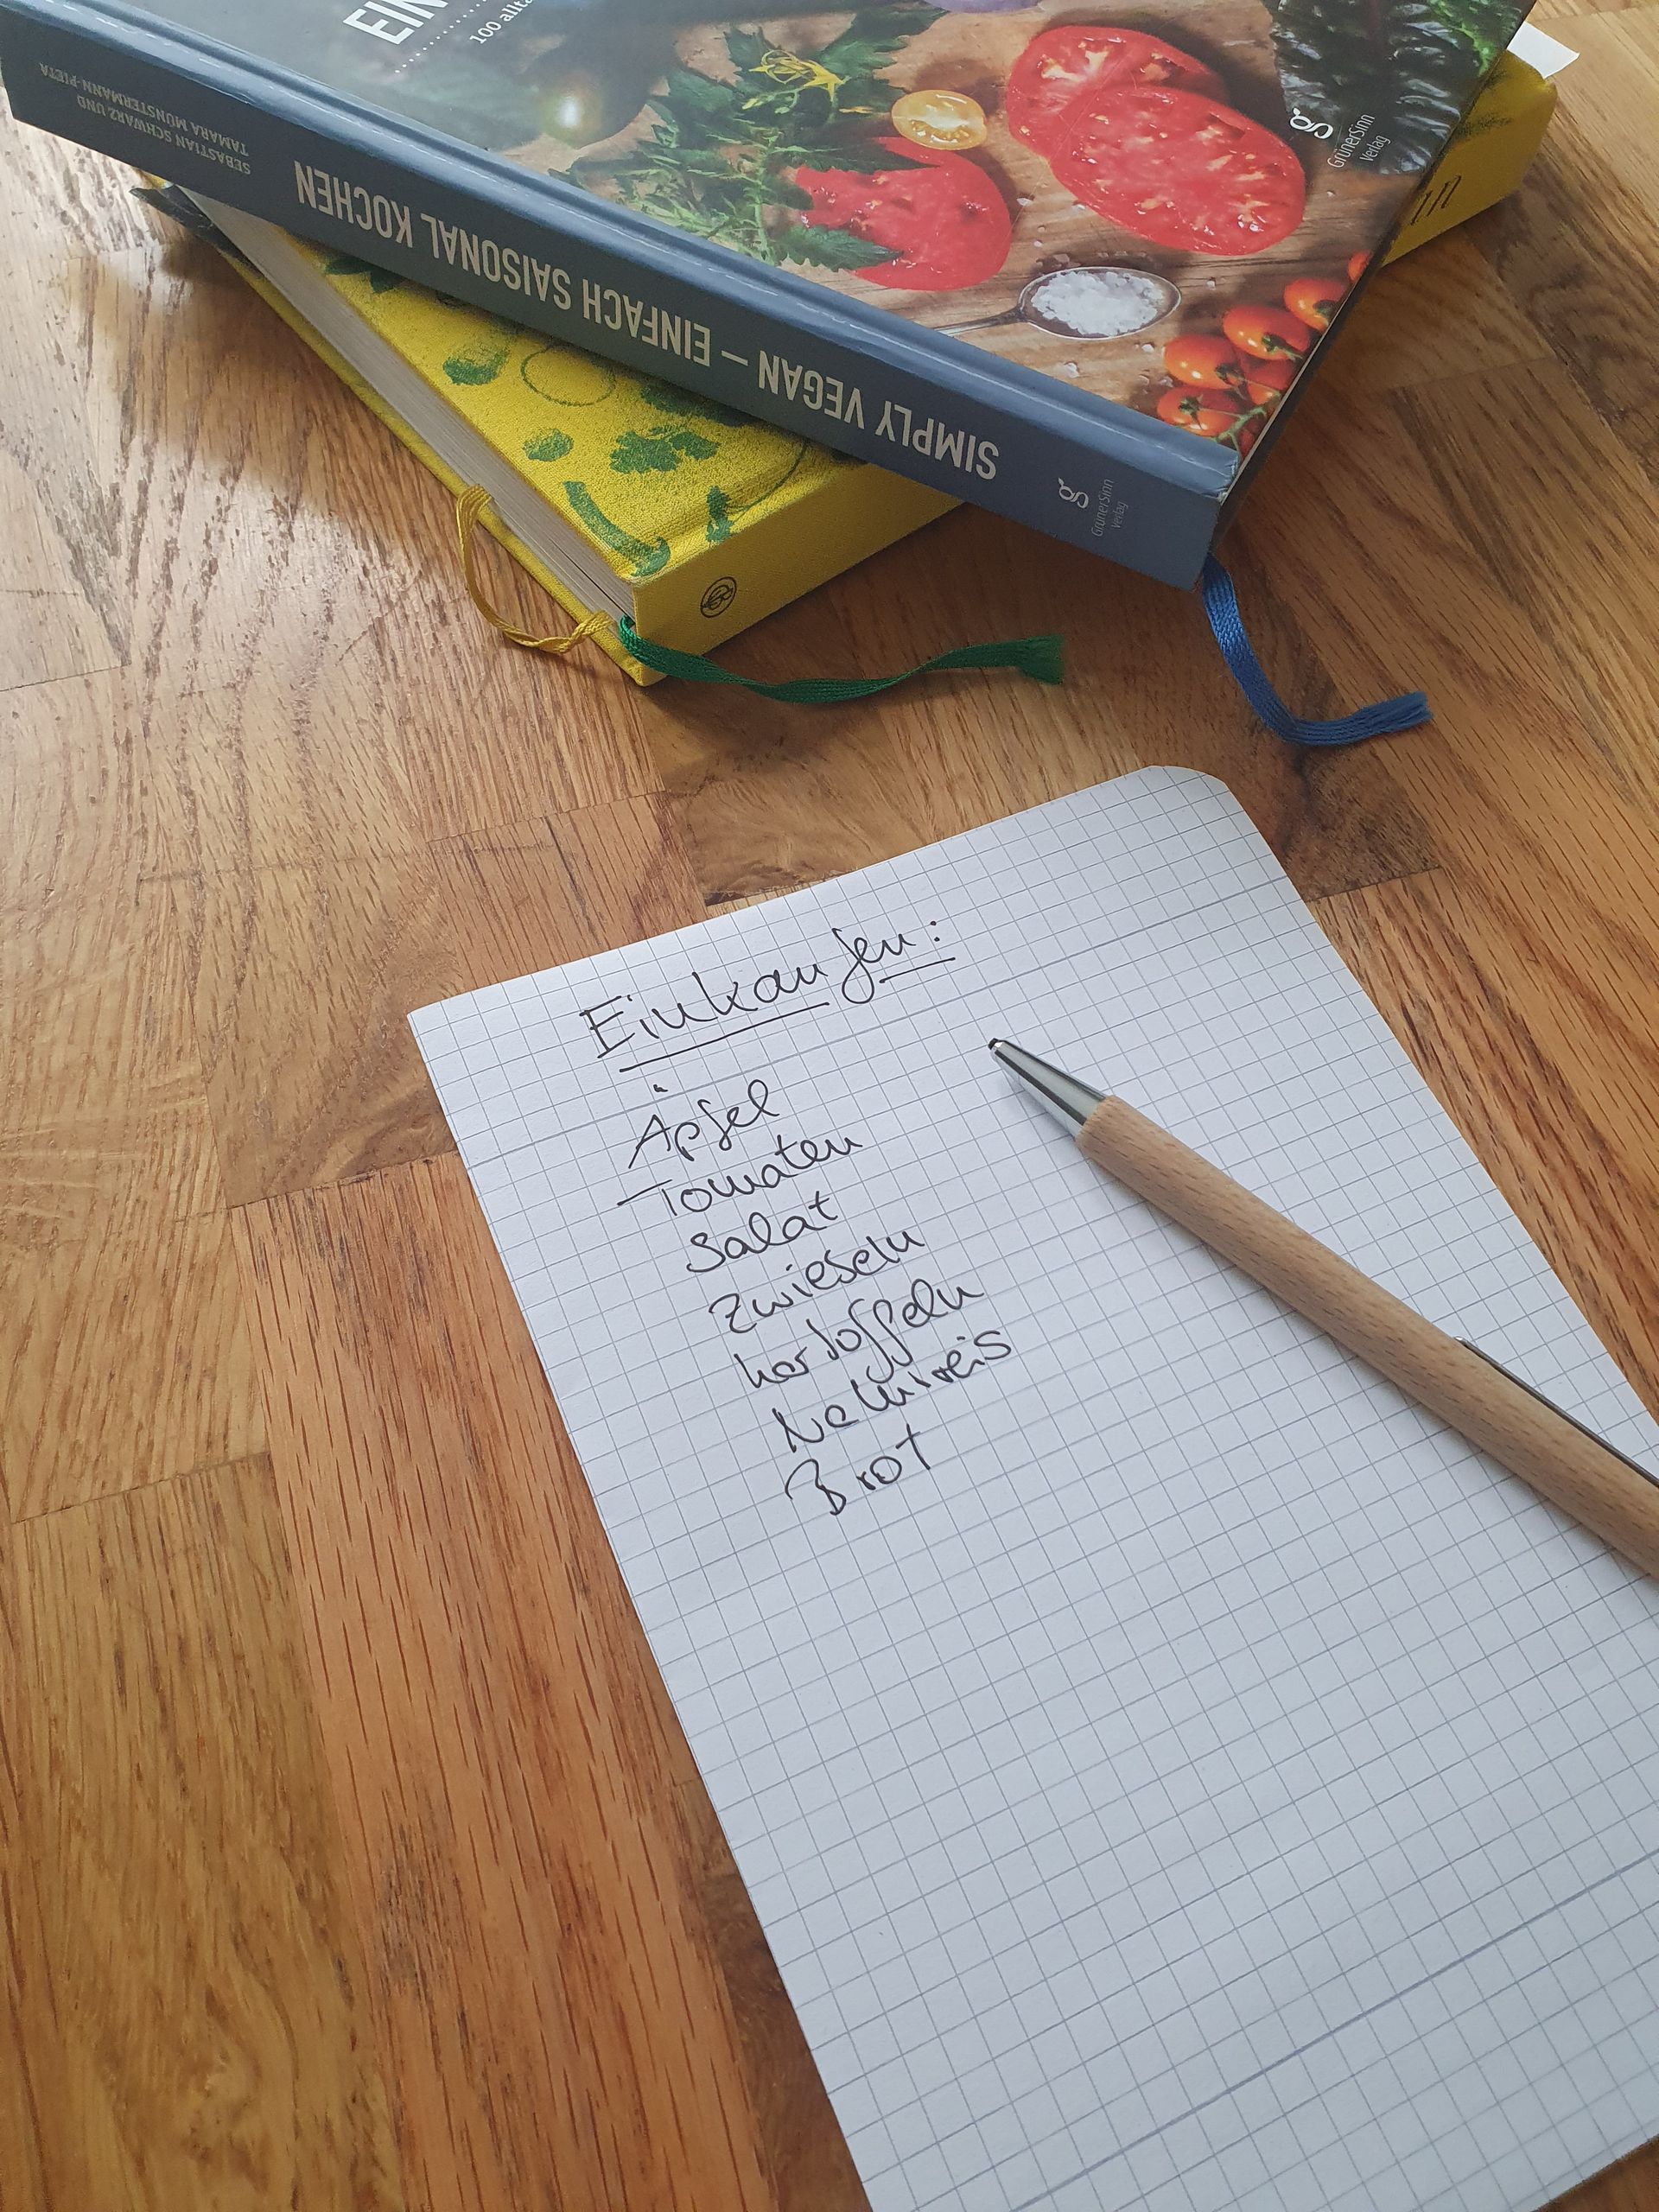 EIN
100 allta
SEBASTIAN SCHWARZ UND
TAMARA MÜNSTERMANN-PIETA
SIMPLY VEGAN – EINFACH SAISONAL KOCHEN
g
GrünerSinn
Verlag
g
GrünerSinn
Verlag
Einkaufen:
Äpfel
Tomaten
Salat
Zwiebeln
Kartoffeln
Naturreis
Brot